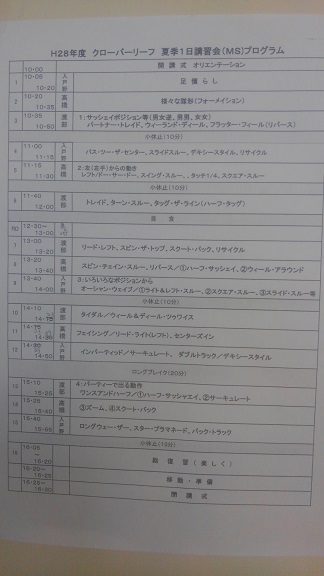 H28年度 クローバーリーフ 夏季1日講習会(MS)プログラム
10-00 開講式 オリエンテーション
1 10-05 10-20 入戸野 足慣らし
2 10-20 10-35 高橋 様々な隊形(フォーメイション)
3 10-35 10-50 渡部 1:サッシェイポジション等(男女逆、男男、女女)
パートナー・トレイド、ウィーランド・ディール、フラッター・フィール(リバース)
小休止(10分)
4 11-00 11-15 入戸野 パス・ツー・ザ・センター、スライドスルー、デキシースタイル、リサイクル
5 11-15 11-30 高橋 2:左(右手)からの動き
レフト/ドー・サ・ドー、スイング・スルー、、タッチ1/4、スクエア・スルー
小休止(10分)
6 11-40 12-00 渡部 トレイド、ターン・スルー、タッグ・ザ・ライン(ハーフ・タッグ)
昼食
12-30~ 13-00
7 13-00 13-20 渡部 リード・レフト、スピン・ザ・トップ、スクート・バック、リサイクル
8 13-20 13-40 高橋 スピン・チェイン・スルー、リバース/①ハーフ・サッシェイ、②ウィール・アラウンド
9 13-40 14-00 入戸野 3:いろいろなポジションから
オーシャン・ウェイブ/①ライト&レフト・スルー、②スクエア・スルー、③スライド・スルー等
小休止(10分)
10 14-10 渡部 タイダル/ウィール&ディール・ツゥワイス
11 高橋 フェイシング/リード・ライト(レフト)、センターズイン
12 14-50 入戸野 インバーティッド/サーキュレート、ダブルトラック/デキシースタイル
ロングブレイク(20分)
13 15-10 渡部 4:パーティーで出る動作
ワンスアンドハーフ/①ハーフ・サッシャエイ、②サーキュレート
14 高橋 ③ズーム、④スケート・バック
15 15-40 15-55 入戸野 ロングウェー・ザー、スター・プラマネード、バック・トラック
小休止(10分)
16 16-05 総復習(楽しく)
移動・準備
閉講式